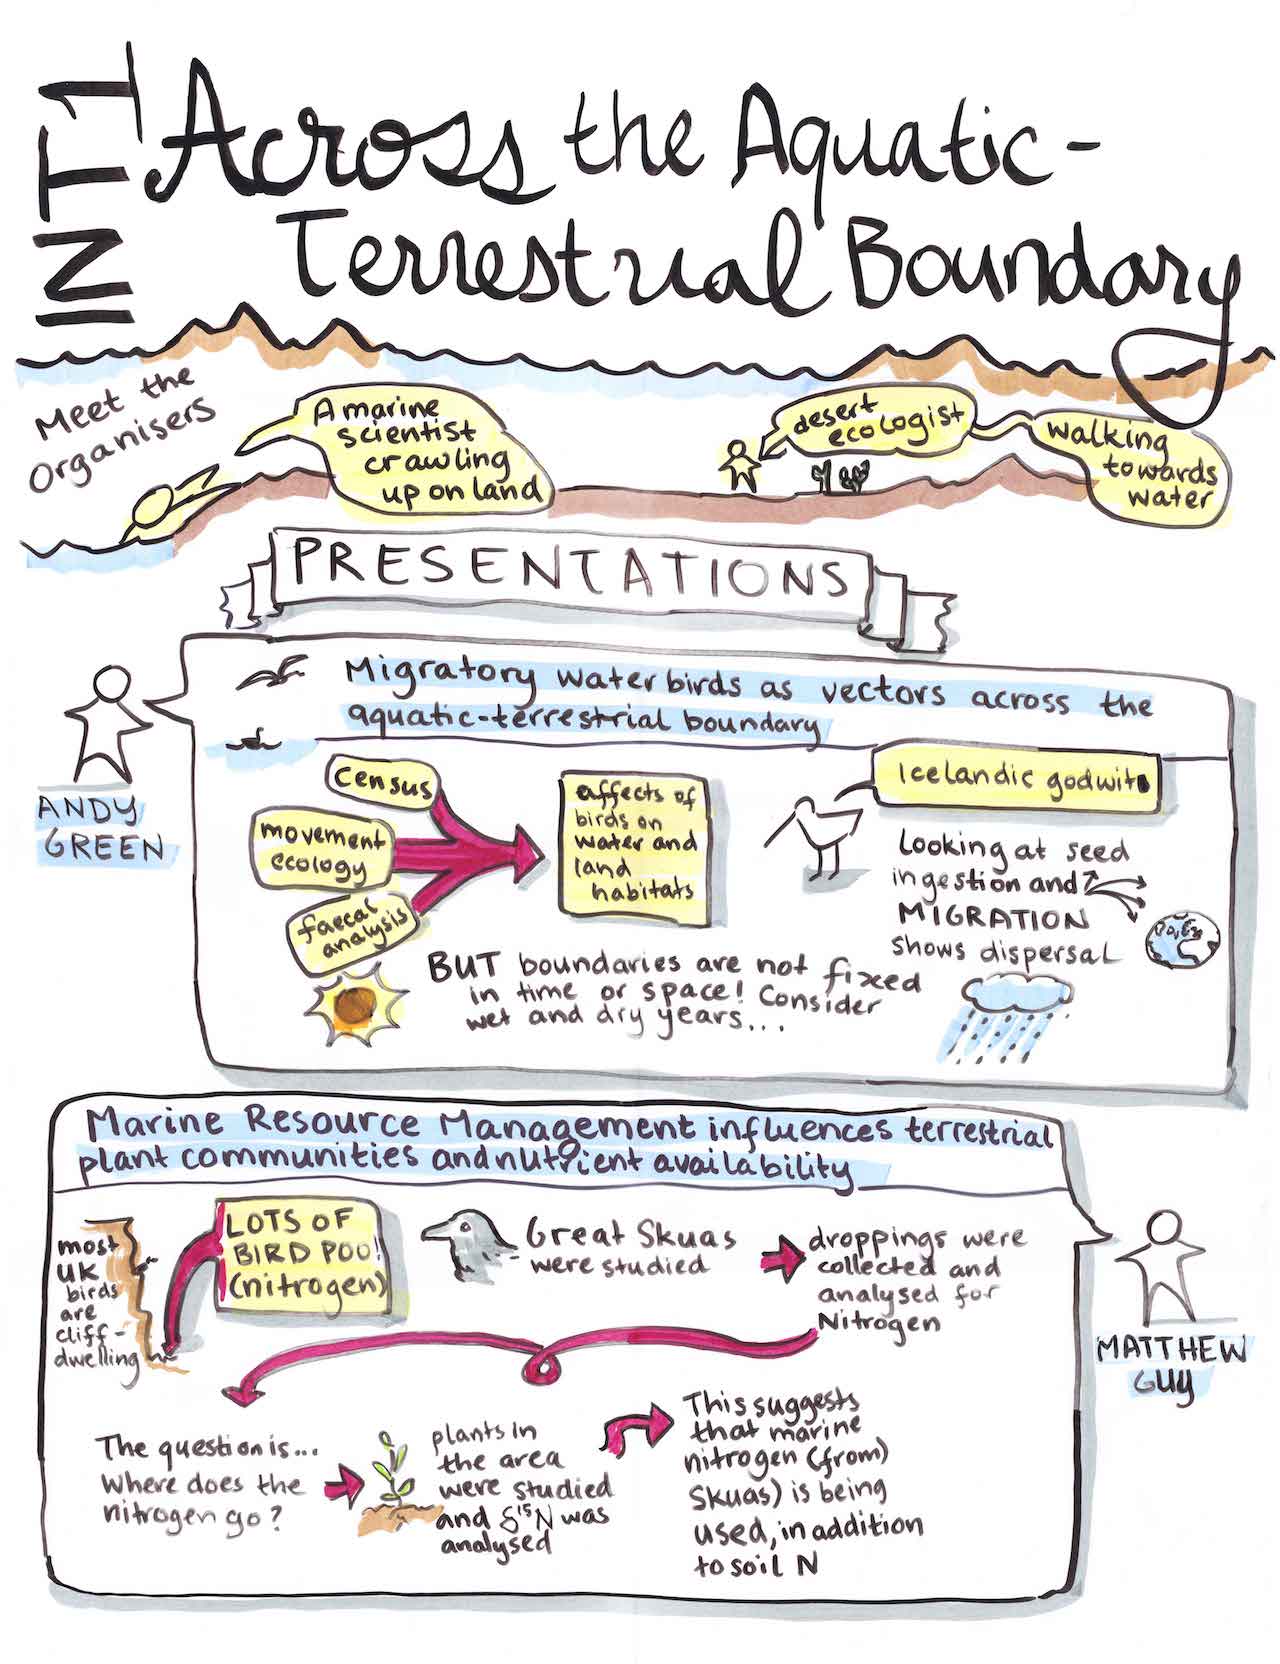 INT1
Across the Aquatic-
Terrestrial Boundary
Meet the
Organisers
A marine
scientist
crawling
up on land
desert
ecologist
walking
towards
water
PRESENTATIONS
ANDY
GREEN
Migratory waterbirds as vectors across the
aquatic-terrestrial boundary
census
movement
ecology
faecal
analysis
affects of
birds on
water and
land
habitats
Icelandic godwit
Looking at seed
ingestion and
MIGRATION
shows dispersal
BUT boundaries are not fixed
in time or space! Consider
wet and dry years...
Marine Resource Management influences terrestrial
plant communities and nutrient availability
most
UK
birds
are
cliff-
dwelling
LOTS OF
BIRD POO!
(nitrogen)
Great Skuas
were studied
droppings were
collected and
analysed for
Nitrogen
MATTHEW
GUY
The question is...
Where does the
nitrogen go?
plants in
the area
were studied
and δ¹⁵N was
analysed
This suggests
that marine
nitrogen (from)
Skuas) is being
used, in addition
to soil N